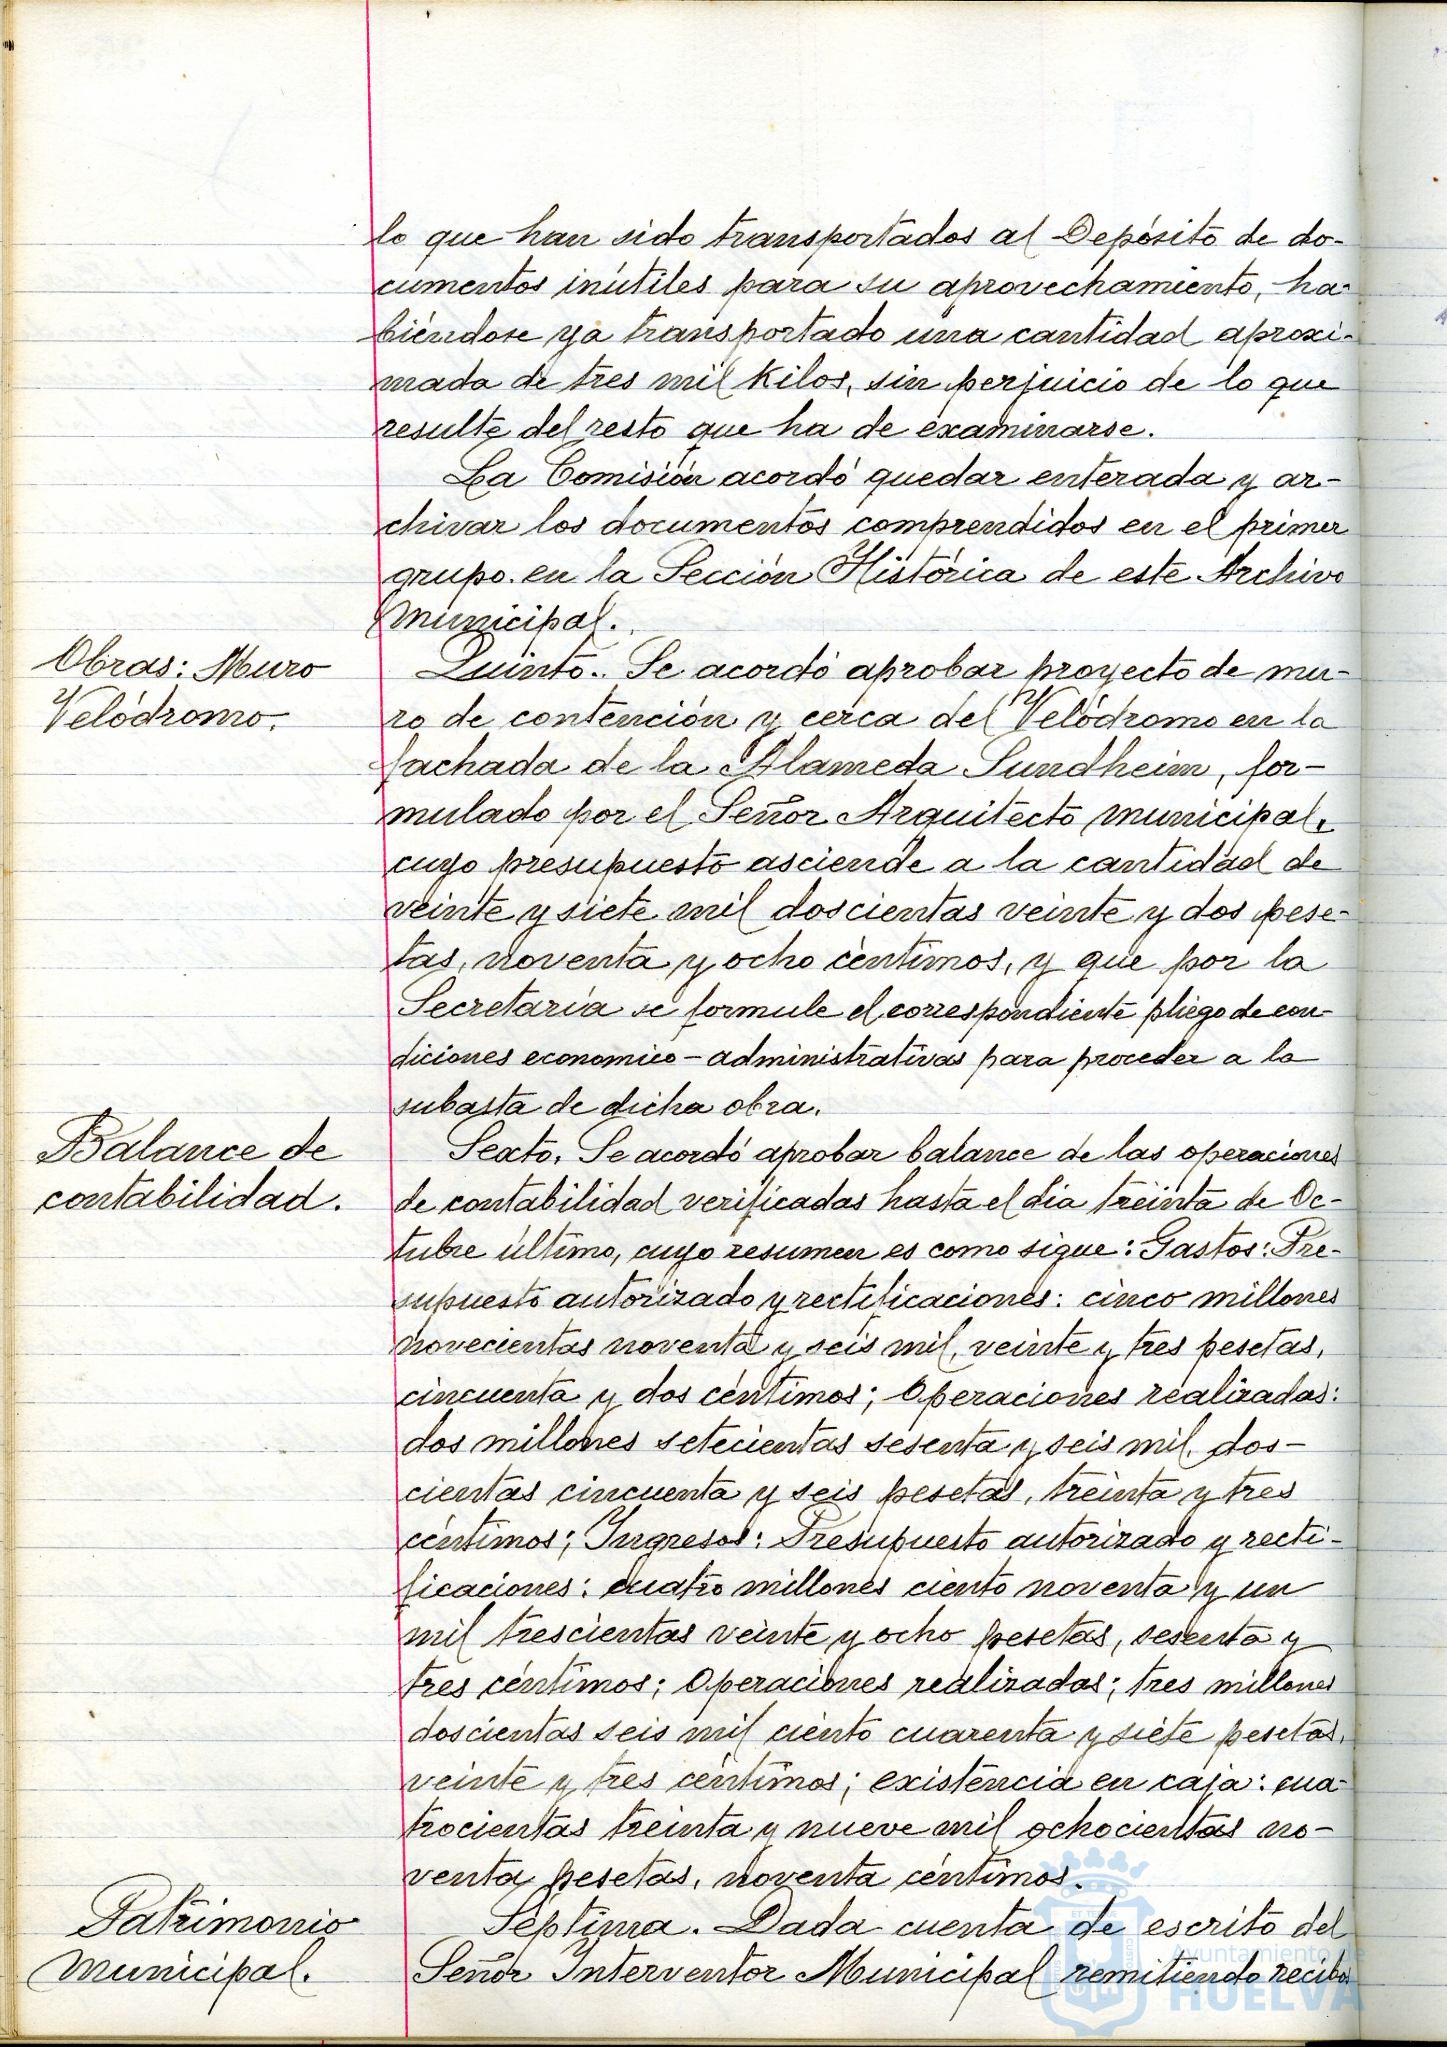 lo que han sido transportados al Depósito de do-
cumentos inútiles para su aprovechamiento, ha-
biéndose ya transportado una cantidad aproxi-
mada de tres mil kilos, sin perjuicio de lo que
resulte del resto que ha de examinarse.
La Comisión acordó quedar enterada y ar-
chivar los documentos comprendidos en el primer
grupo en la Sección Histórica de este Archivo
municipal.
Obras: Muro
Velódromo.
Quinto.- Se acordó aprobar proyecto de mu-
ro de contención y cerca del Velódromo en la
fachada de la Alameda Sundheim, for-
mulado por el Señor Arquitecto municipal,
cuyo presupuesto asciende a la cantidad de
veinte y siete mil doscientas veinte y dos pese-
tas, noventa y ocho céntimos, y que por la
Secretaría se formule el correspondiente pliego de con-
diciones economico-administrativas para proceder a la
subasta de dicha obra.
Balance de
contabilidad.
Sexto. Se acordó aprobar balance de las operaciones
de contabilidad verificadas hasta el día treinta de Oc-
tubre último, cuyo resumen es como sigue: Gastos: Pre-
supuesto autorizado y rectificaciones: cinco millones
novecientas noventa y seis mil, veinte y tres pesetas,
cincuenta y dos céntimos; Operaciones realizadas:
dos millones setecientas sesenta y seis mil dos-
cientas cincuenta y seis pesetas, treinta y tres
céntimos; Ingresos: Presupuesto autorizado y recti-
ficaciones: cuatro millones ciento noventa y un
mil trescientas veinte y ocho pesetas, sesenta y
tres céntimos; Operaciones realizadas; tres millones
doscientas seis mil ciento cuarenta y siete pesetas,
veinte y tres céntimos; existencia en caja: cua-
trocientas treinta y nueve mil ochocientas no-
venta pesetas, noventa céntimos.
Patrimonio
municipal.
Séptima. Dada cuenta de escrito del
Señor Interventor Municipal remitiendo recibos
Ayuntamiento de
HUELVA